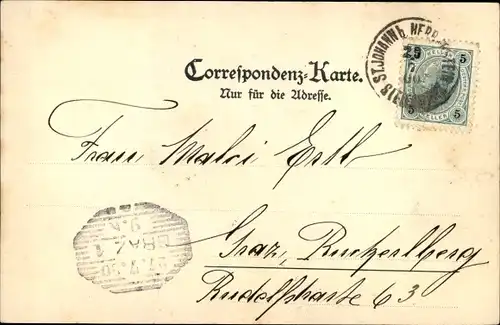 Correspondenz-Karte.
Nur für die Adresse.
ST. JOHANN b. HERB
5 HELLER 5
5 5
Frau Malvi Ertl
Graz, Ruckerlberg
Rudolfstraße 63
GRAZ